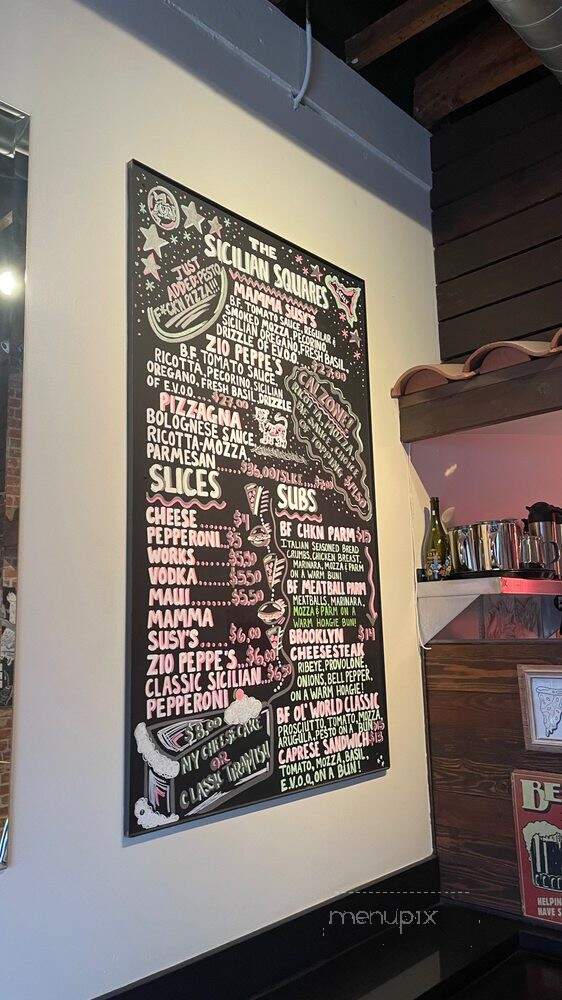 THE
SICILIAN SQUARES
JUST
ADDED: PESTO
F*CK'N PIZZA!!!
MAMMA SUSY'S
B.F. TOMATO SAUCE, REGULAR &
SMOKED MOZZA, PECORINO,
SICILIAN OREGANO, FRESH BASIL,
DRIZZLE OF E.V.O.O. $27.00
ZIO PEPPE'S
B.F. TOMATO SAUCE,
RICOTTA, PECORINO, SICILIAN
OREGANO, FRESH BASIL, DRIZZLE
OF E.V.O.O. $27.00
CALZONE!
RICOTTA, MOZZ,
TOPPING
$14.50
PIZZAGNA
BOLOGNESE SAUCE,
RICOTTA-MOZZA,
PARMESAN...... $36.00/SLICE
SLICES
CHEESE....... $4
PEPPERONI.. $5
WORKS........ $5.50
VODKA........ $5.50
MAUI......... $5.50
MAMMA
SUSY'S...... $6.00
ZIO PEPPE'S.. $6.00
CLASSIC SICILIAN.. $6.50
PEPPERONI
$8.00
NY CHEESECAKE
OR
CLASSIC TIRAMISU
SUBS
BF CHKN PARM $15
ITALIAN SEASONED BREAD
CRUMBS, CHICKEN BREAST,
MARINARA, MOZZA & PARM
ON A WARM BUN!
BF MEATBALL PARM
MEATBALLS, MARINARA,
MOZZA & PARM ON A
WARM HOAGIE BUN!
BROOKLYN $14
CHEESESTEAK
RIBEYE, PROVOLONE,
ONIONS, BELL PEPPER,
ON A WARM HOAGIE!
BF OL' WORLD CLASSIC
PROSCIUTTO, TOMATO, MOZZA,
ARUGULA, PESTO ON A BUN $15
CAPRESE SANDWICH $13
TOMATO, MOZZA, BASIL,
E.V.O.O, ON A BUN!
BE
HELPING
HAVE S
menupix